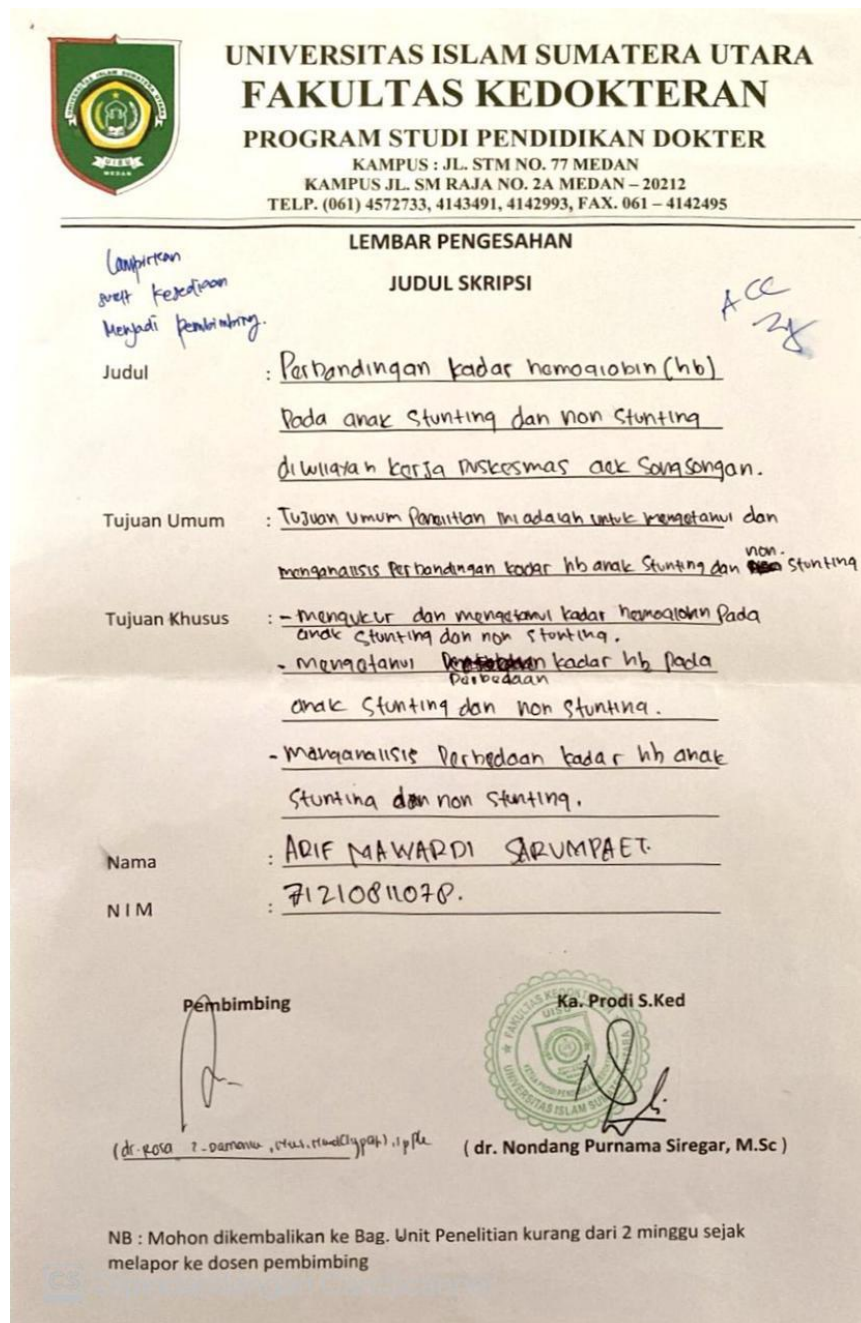 UNIVERSITAS ISLAM SUMATERA UTARA
FAKULTAS KEDOKTERAN
PROGRAM STUDI PENDIDIKAN DOKTER
KAMPUS : JL. STM NO. 77 MEDAN
KAMPUS JL. SM RAJA NO. 2A MEDAN – 20212
TELP. (061) 4572733, 4143491, 4142993, FAX. 061 – 4142495
UNIVERSITAS ISLAM SUMATERA UTARA
UISU
MEDAN
LEMBAR PENGESAHAN
JUDUL SKRIPSI
Lampirkan
surat kesediaan
Menjadi pembimbing.
ACC
Judul : Perbandingan kadar hemoglobin (hb)
Pada anak stunting dan non stunting
diwilayah kerja Puskesmas aek Songsongan.
Tujuan Umum : Tujuan umum Penelitian ini adalah untuk mengetahui dan
menganalisis Perbandingan kadar hb anak stunting dan non. stunting
Tujuan Khusus : - mengukur dan mengetahui kadar hemoglobin Pada
anak stunting dan non stunting.
- mengetahui Perbedaan kadar hb Pada
anak stunting dan non stunting.
- Menganalisis Perbedaan kadar hb anak
stunting dan non stunting.
Nama : ARIF MAWARDI SARUMPAET.
NIM : 71210811078.
Pembimbing
Ka. Prodi S.Ked
FAKULTAS KEDOKTERAN
UISU
UNIVERSITAS ISLAM SUMATERA UTARA
(dr. Rosa
( dr. Nondang Purnama Siregar, M.Sc )
NB : Mohon dikembalikan ke Bag. Unit Penelitian kurang dari 2 minggu sejak
melapor ke dosen pembimbing
CS